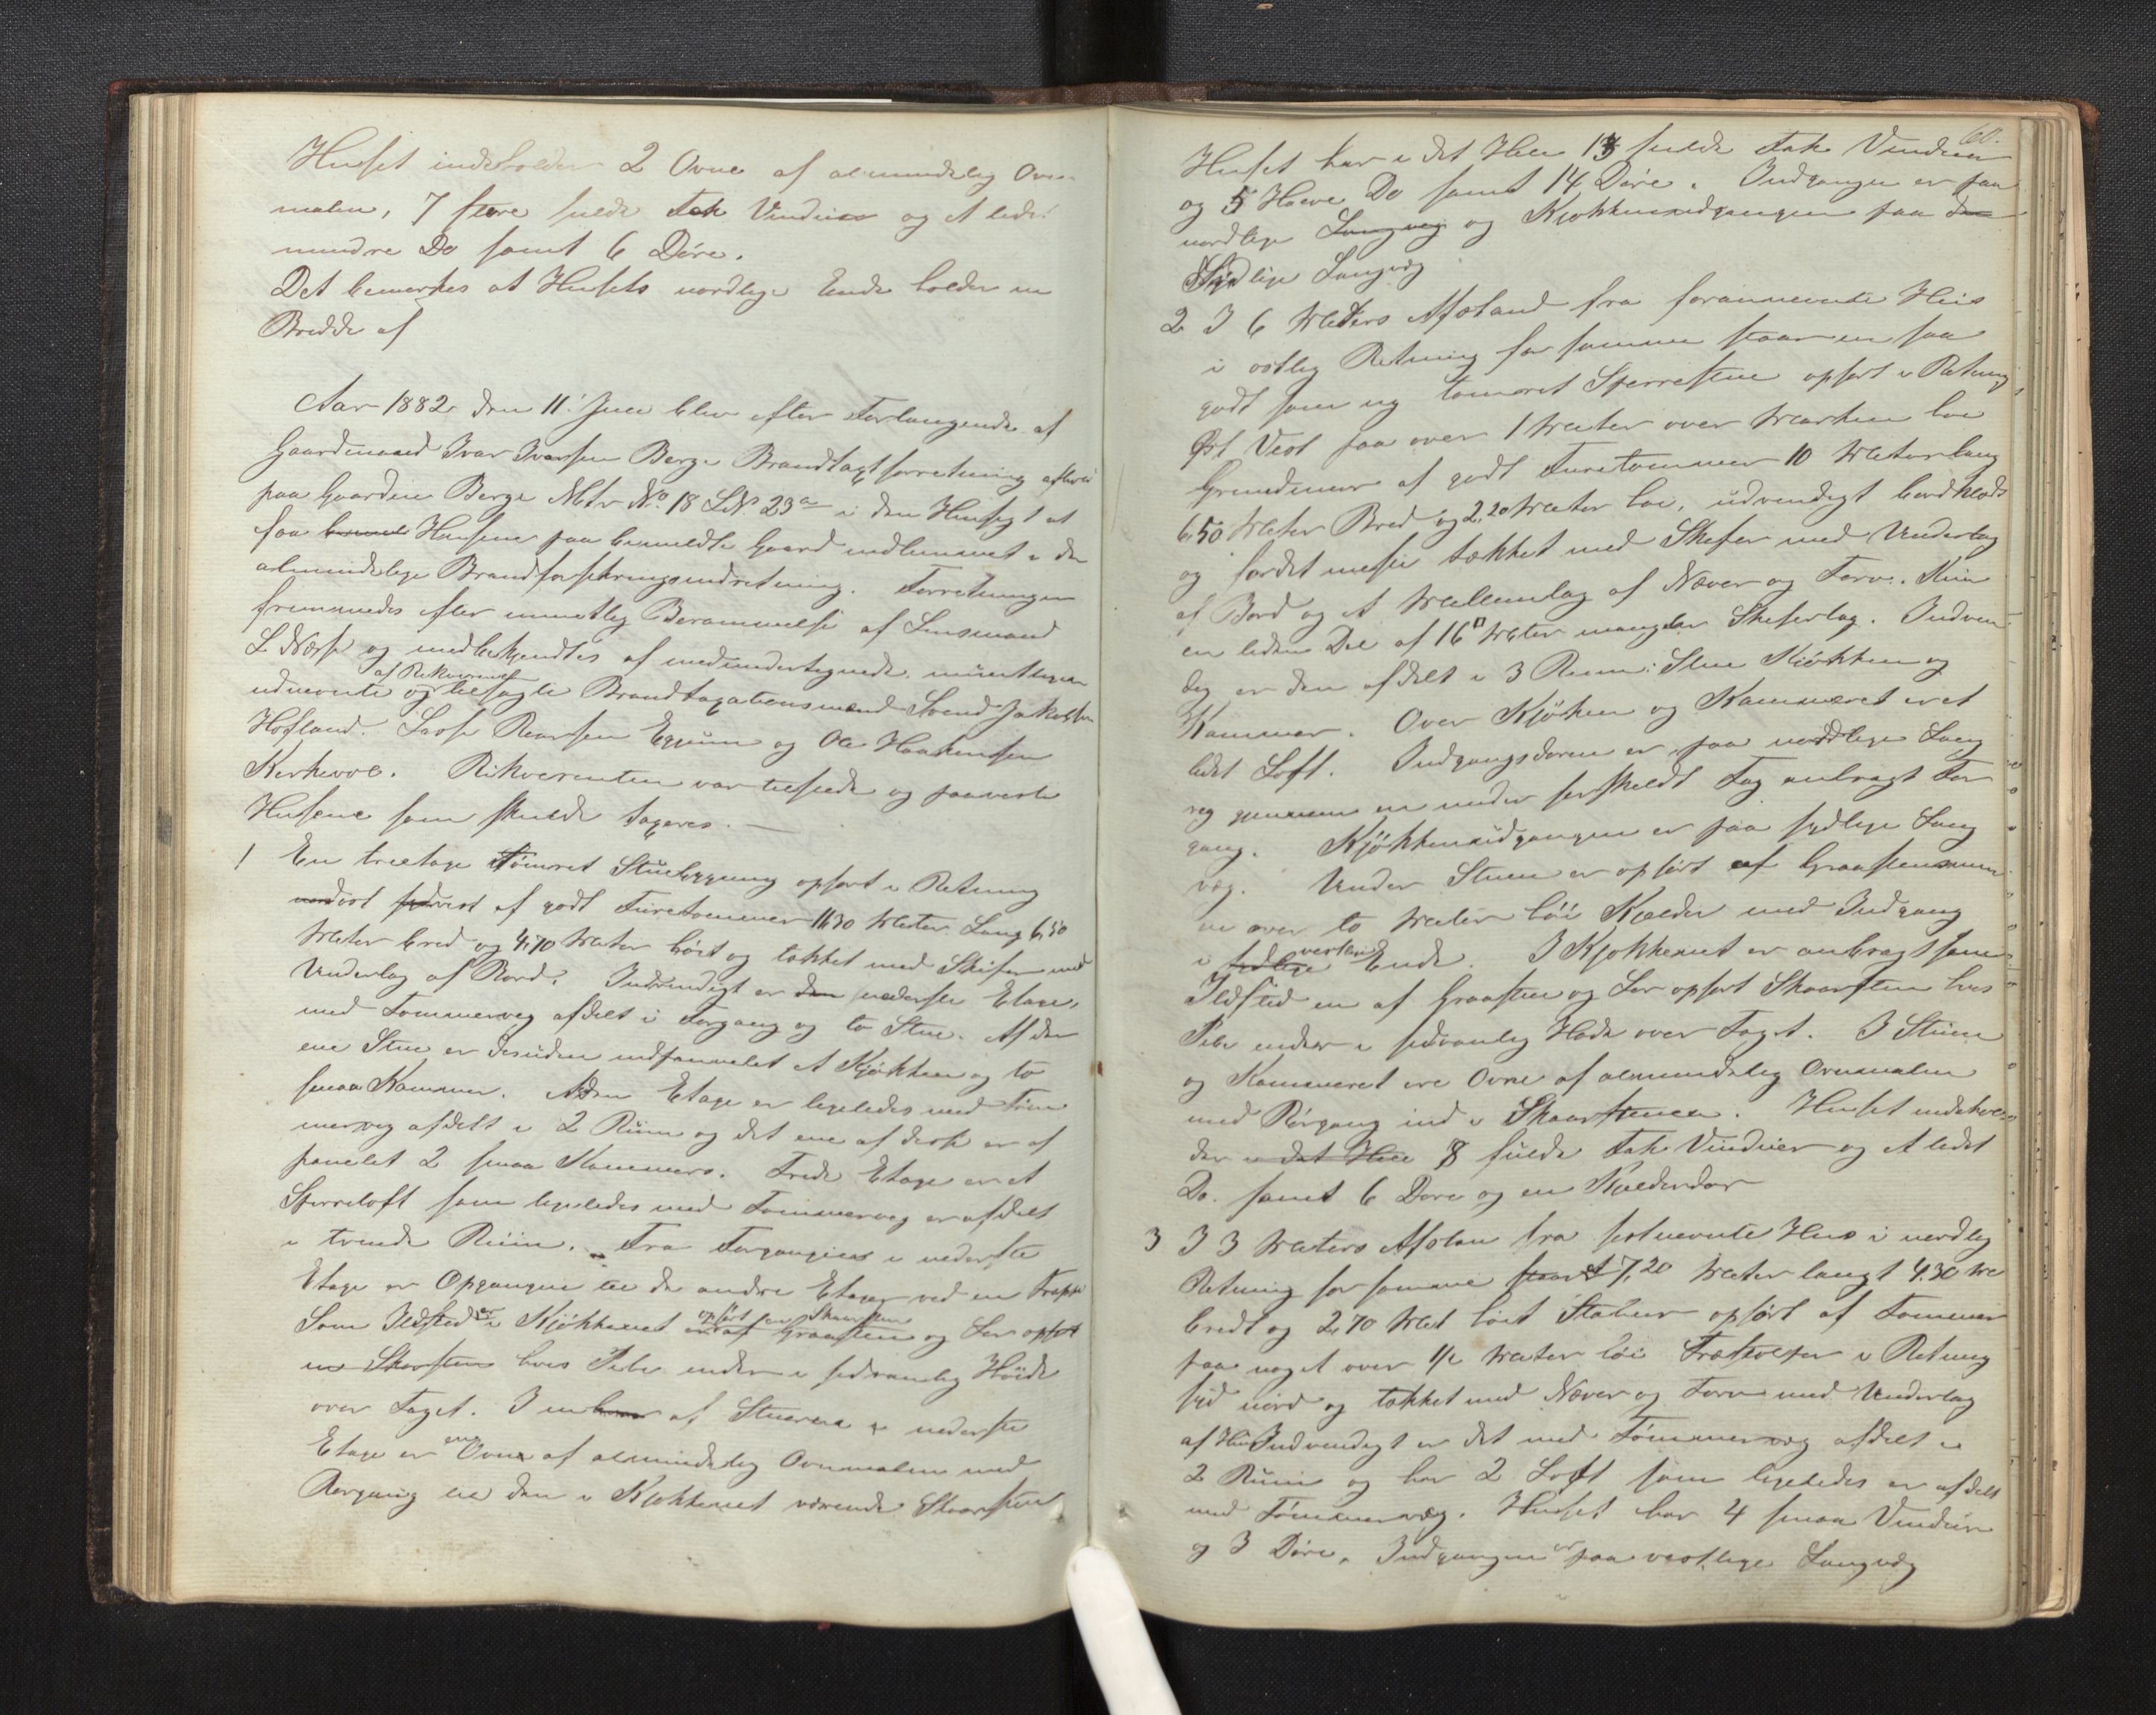 Huset indeholder 2 Ovne af almindelig Ovn-
malm, 7 store fulde Fak Vinduer og et lidt
mindre Do samt 6 Døre.
Det bemærkes at Husets nordlige Ende holder en
Bredde af
Aar 1882 den 11' Juli blev efter Forlangende af
Gaardmand Ivar Ivarsen Berge Brandtaxtforretning
paa Gaarden Berge Mtr No. 18 LN. 23a i den Hensigt at
faa Husene paa bemeldte Gaard indlemmet i den
almindelige Brandforsikringsindretning. Forretningen
fremmedes efter mundtlig Berammelse af Lensmand
L Næss og medbekjendtes af medundertegnede
af Rekvirenten
udnævnte og tilsagte Brandtaxationsmænd Svend Jakobsen
Hofland. Lasse Rearsen Eggum og Ole Haakensen
Kirkevol. Rekvirenten var tilstede og paaviste
Husene som skulde taxeres. —
1 En treetage Tømret Stuebygning opført i Retning
nordost sydvest af godt Furetømmer 11,30 Meter Lang 6,50
Meter bred og 4,70 Meter høit og tækket med Skifer med
Underlag af Bord. Indvendigt er den nederste Etage,
med Tømmerveg afdelt i Forgang og to Stue. Af den
ene Stue er desuden indpannelet et Kjøkken og to
smaa Kammer. Anden Etage er ligeledes med Tøm
mervæg afdelt i 2 Rum og det ene af disse er af
panelet 2 smaa Kammers. Tredie Etage er et
Sperreloft som ligeledes med Tømmervæg er afdelt
i tvende Rum. Fra Forgangen i nederste
Etage er Opgangen til de andre Etager ved en Trappe
opført en Skaarsten
Som Ildsted er i Kjøkkenet af Graasten og Ler opført
en Skorsten hvis Pibe ender i sedvanlig Høide
over Taget. I en af Stuerne i nederste
Etage er en Ovn af almindelig Ovnmalm med
Rørgang til den i Kjøkkenet værende Skaarsten
60.
Huset har i det Hele 13 fulde Fak Vinduer
og 5 Halve Do samt 14 Døre. Indgangen er paa
nordlige Langvæg og Kjøkkenindgangen paa den
Sydlige Langvæg
2 I 6 Meters Afstand fra forannevnte Hus
i østlig Retning for samme staar en saa
godt som ny tømret Sperrestue opført i Retning
Øst Vest paa over 1 Meter over Marken høi
Grundmur af godt Furetømmer 10 Meter lang
6,50 Meter Bred og 2,20 Meter høi, udvendigt bordklædt
og for det meste tækket med Skifer med Underlag
af Bord og et Mellemlag af Næver og Torv. Kun
en liden Del af 16 □ Meter mangler Skiferlag. Indven
dig er den afdelt i 3 Rum: Stue Kjøkken og
Kammer. Over Kjøkken og Kammeret er et
lidet Loft. Indgangsdøren er paa nordlige Lang
veg gjennem en under særskildt Tag anbragt For
gang. Kjøkkenindgangen er paa sydlige Lang
væg. Under Stuen er opført af Graastensmur
en over to Meter høi Kjælder med Indgang
vestlige
i sydlige Ende. I Kjøkkenet er anbragt som
Ildsted en af Graasten og Ler opført Skaarsten hvis
Pibe ender i sedvanlig Høide over Taget. I Stuen
og Kammeret ere Ovne af almindelig Ovnmalm
med Rørgang ind i Skaarstenen. Huset indehol
der i det Hele 8 fulde Fak Vinduer og et lidet
Do. samt 6 Døre og en Kjelderdør
3 I 3 Meters Afstan fra sistnevnte Hus i nordlig
Retning for samme staar et 7,20 Meter langt 4,30 Me
bredt og 2,70 Met høit Stabur opført af Tømmer
paa noget over 1/2 Meter høi Træstolper i Retning
syd nord og tækket med Næver og Torv med Underlag
af Hun Indvendigt er det med Tømmervæg afdelt i
2 Rum og har 2 Loft som ligeledes er afdelt
med Tømmervæg. Huset har 4 smaa Vinduer
og 3 Døre. Indgangen er paa vestlige Langvæg